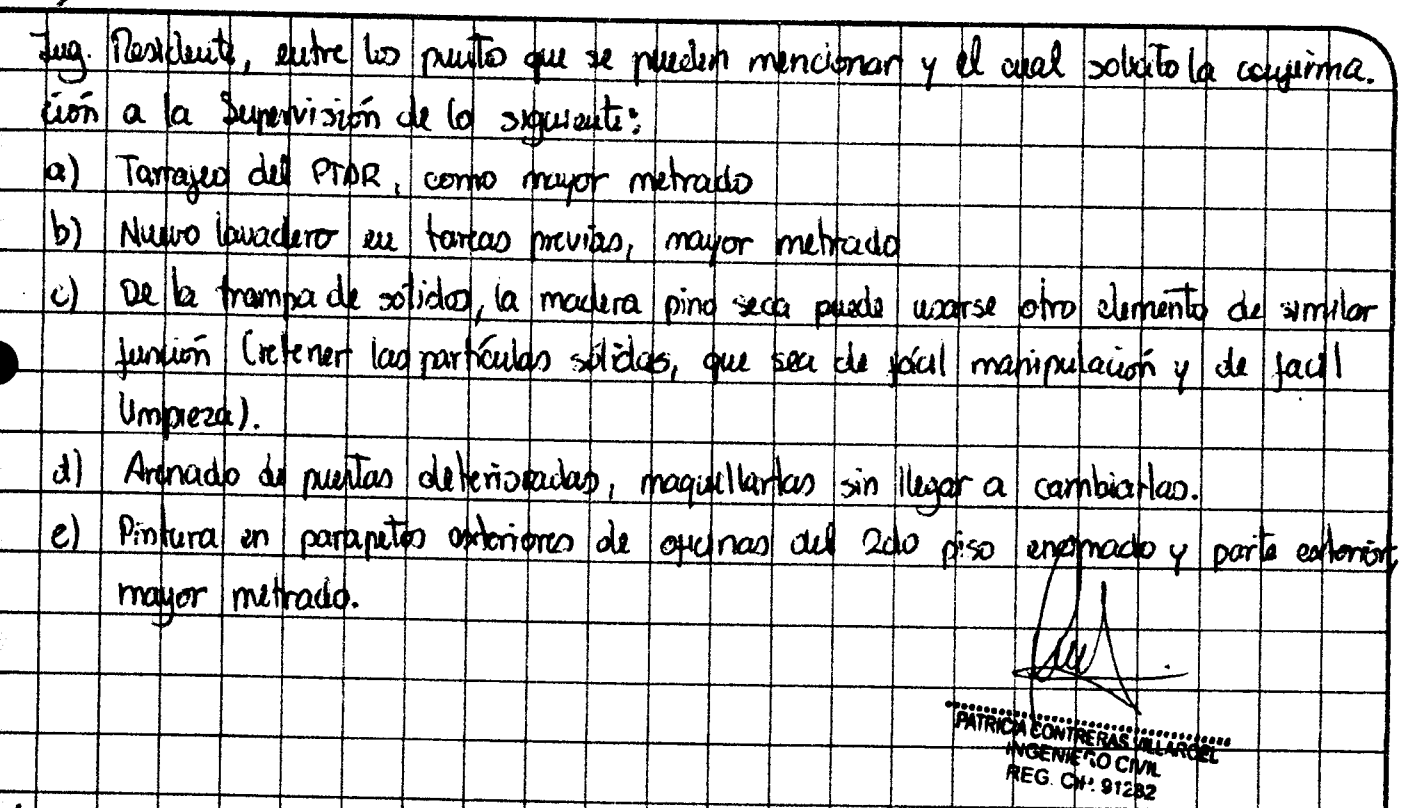 Ing. Residente, entre los punto que se pueden mencionar y el cual solicito la confirma.
ción a la Supervisión de lo siguiente:
a) Tarrajeo del PTAR, como mayor metrado
b) Nuevo lavadero en tareas previas, mayor metrado
c) De la trampa de sólidos, la madera pino seca puede usarse otro elemento de similar
función (retener las partículas sólidas, que sea de fácil manipulación y de facil
limpieza).
d) Arenado de puertas deterioradas, maquillarlas sin llegar a cambiarlas.
e) Pintura en parapetos exteriores de oficinas del 2do piso enamado y parte exterior,
mayor metrado.
PATRICIA CONTRERAS VILLAROEL
INGENIERO CIVIL
REG. CIP. 91282